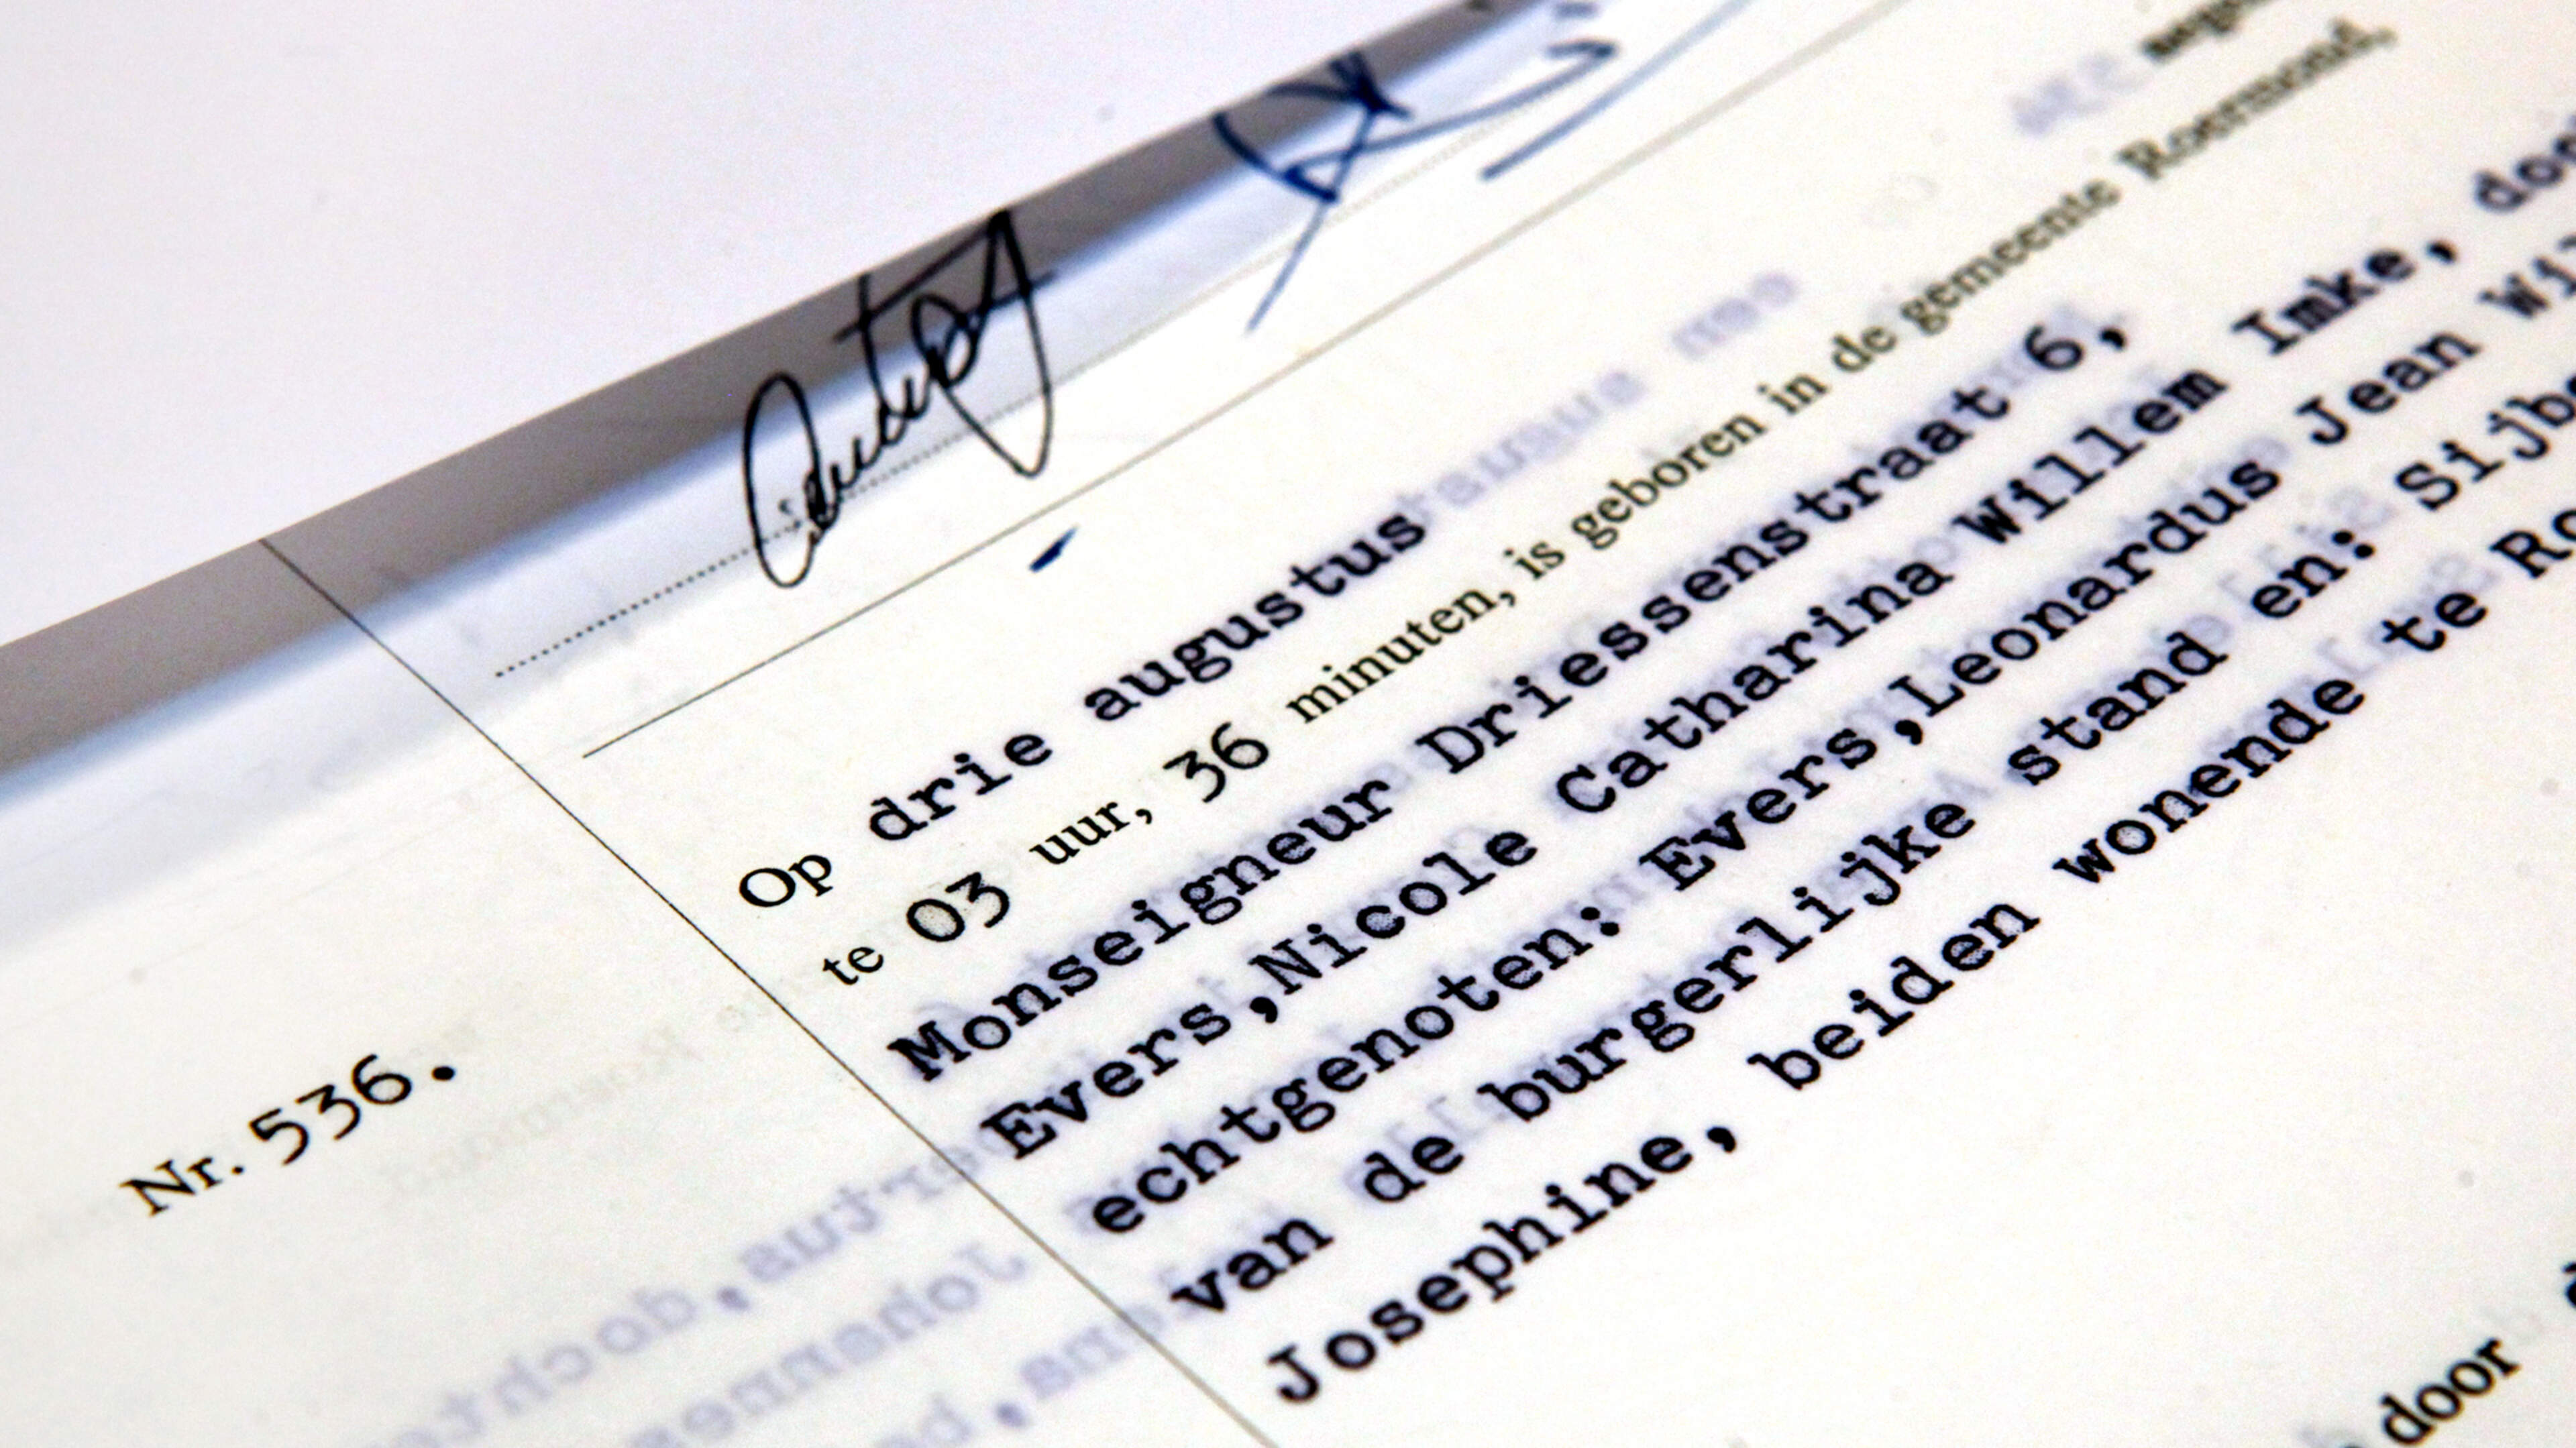 Op drie augustus
te 03 uur, 36 minuten, is geboren in de gemeente Roermond,
Monseigneur Driessenstraat 6,
Evers,Nicole Catharina Willem Imke,
echtgenoten: Evers,Leonardus Jean
van de burgerlijke stand en:
Josephine, beiden wonende te
Nr. 536.
door